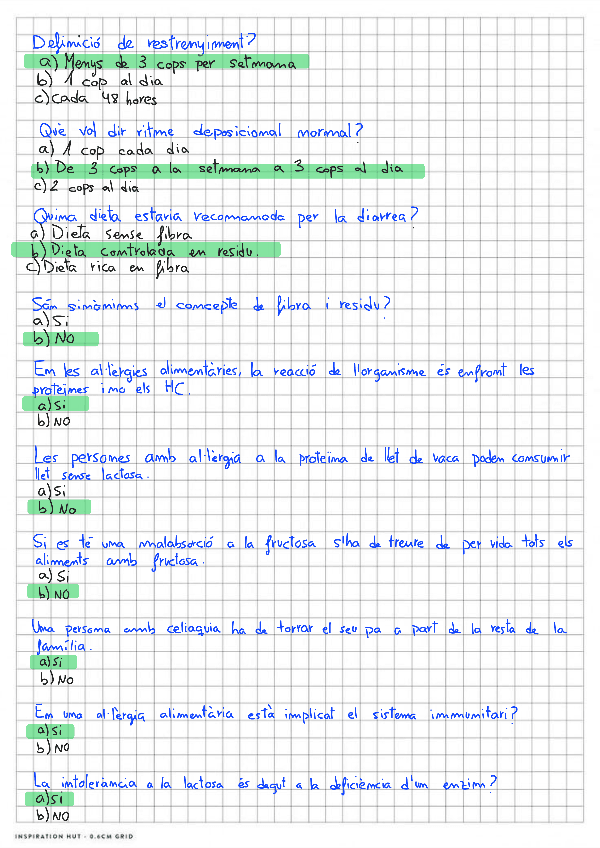 Definició de restrenyiment?
a) Menys de 3 cops per setmana
b) 1 cop al dia
c) Cada 48 hores
Què vol dir ritme deposicional normal?
a) 1 cop cada dia
b) De 3 cops a la setmana a 3 cops al dia
c) 2 cops al dia
Quina dieta estaria recomanada per la diarrea?
a) Dieta sense fibra
b) Dieta controlada en residu.
c) Dieta rica en fibra
Són sinònims el concepte de fibra i residu?
a) Si
b) NO
En les al·lèrgies alimentàries, la reacció de l'organisme és enfront les
proteïnes i no els HC.
a) Si
b) NO
Les persones amb al·lèrgia a la proteïna de llet de vaca poden consumir
llet sense lactosa.
a) Si
b) No
Si es té una malabsorció a la fructosa s'ha de treure de per vida tots els
aliments amb fructosa.
a) Si
b) NO
Una persona amb celiaquia ha de torrar el seu pa a part de la resta de la
família.
a) Si
b) NO
En una al·lèrgia alimentària està implicat el sistema immunitari?
a) Si
b) NO
La intolerància a la lactosa és degut a la deficiència d'un enzim?
a) Si
b) NO
INSPIRATION HUT - 0.6CM GRID